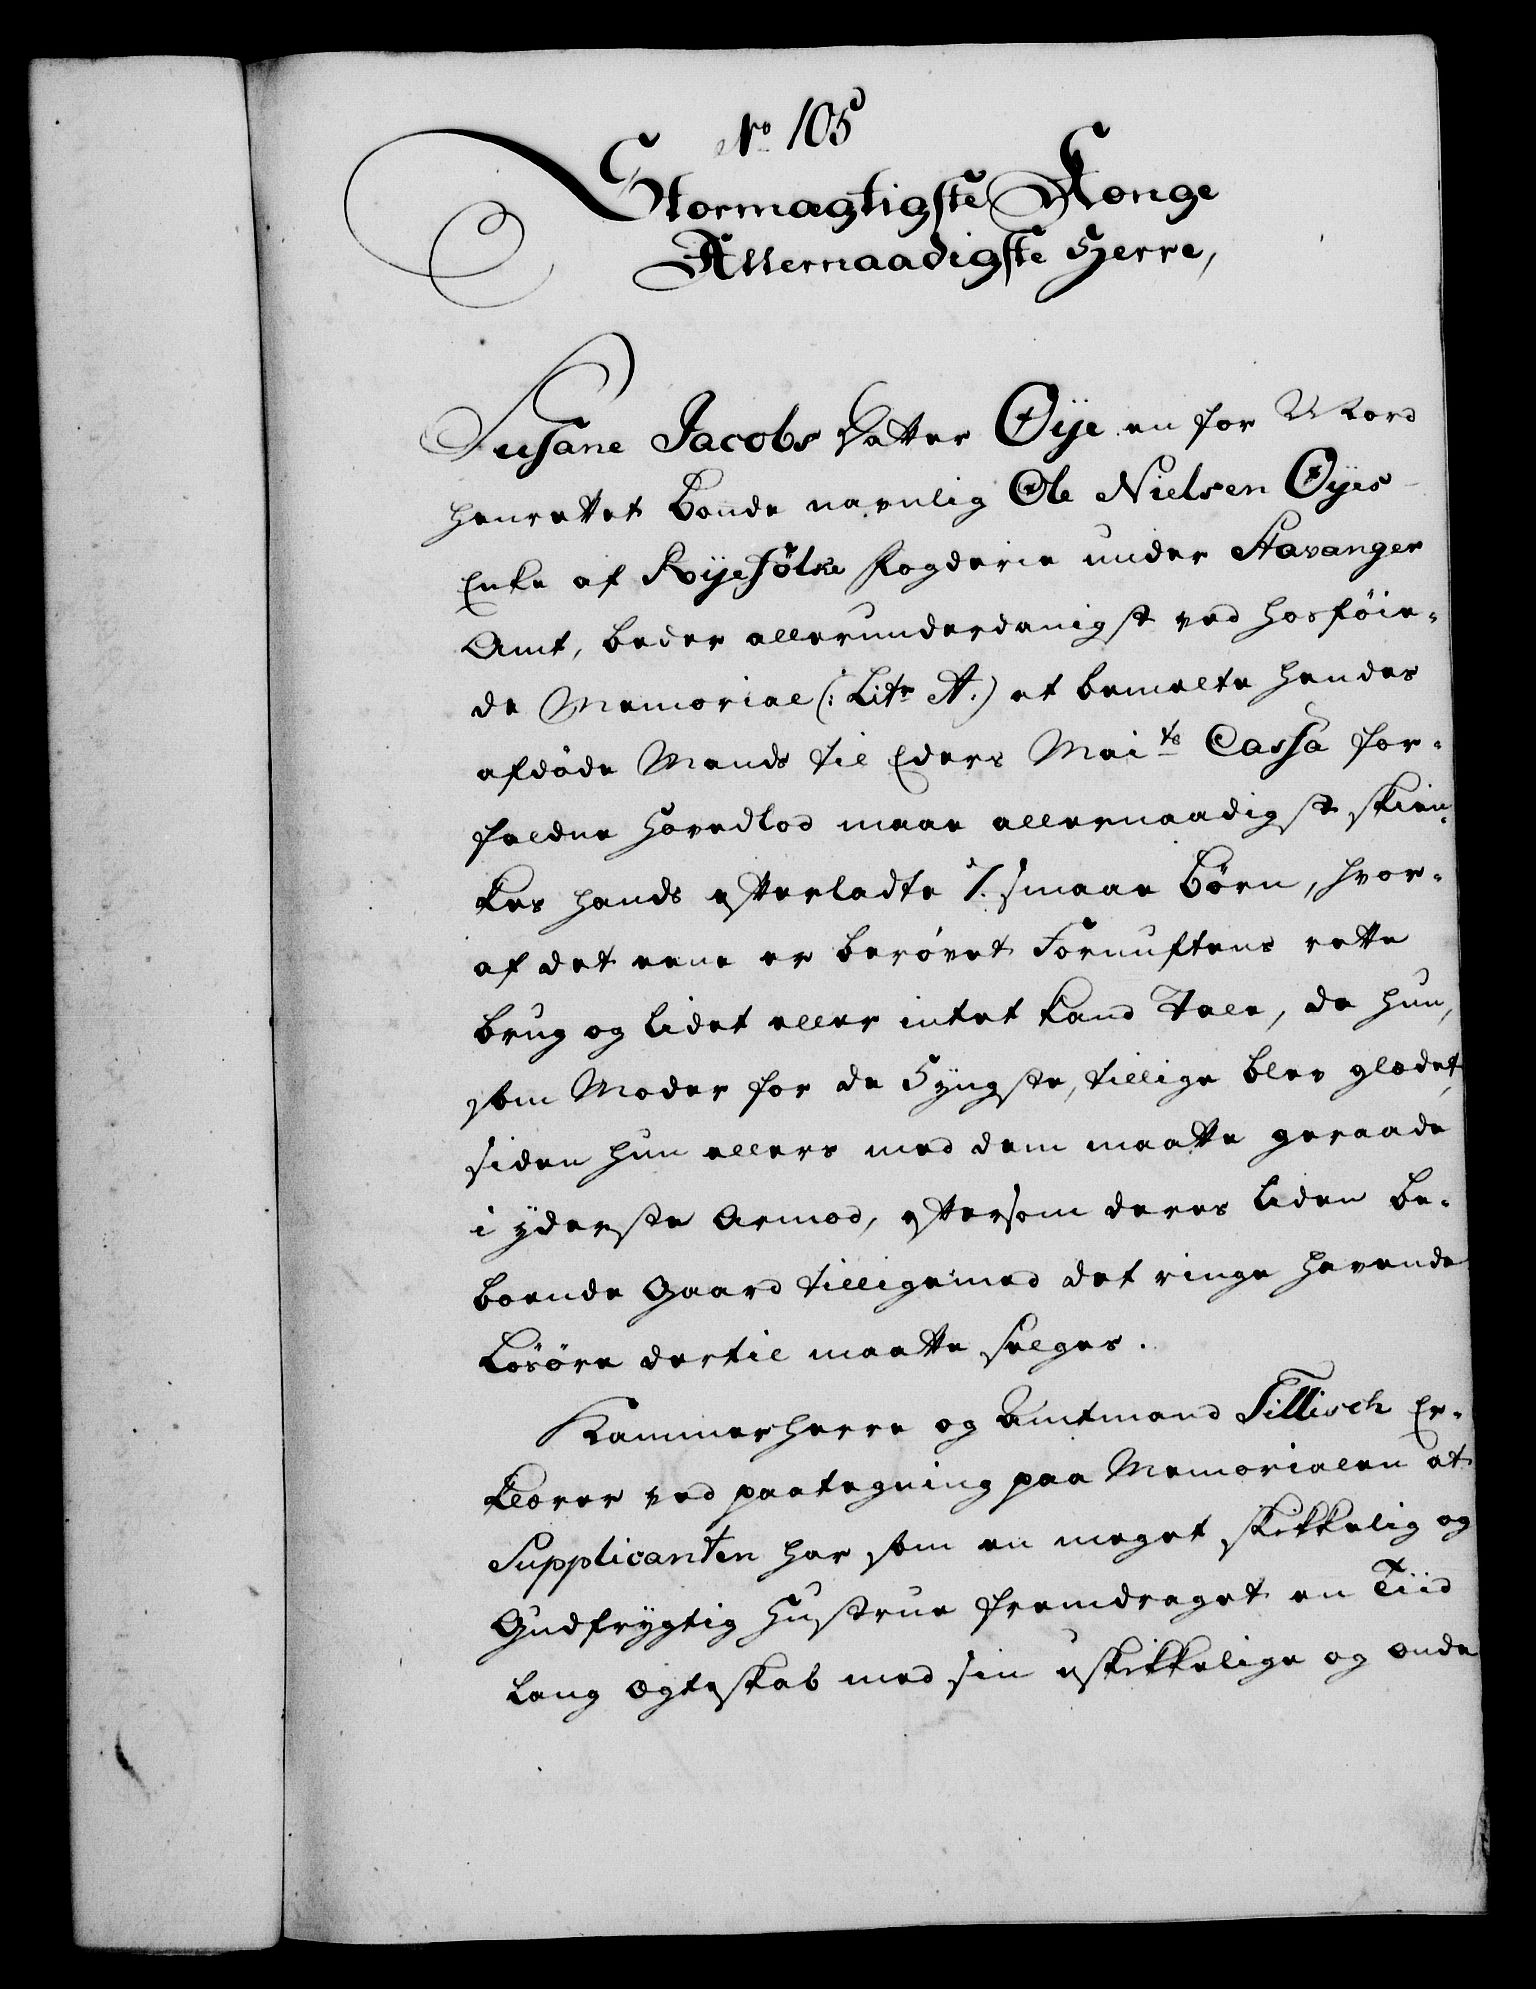 No 105
Stormægtigste Konge
Allernaadigste Herre,
Susane Jacobs Datter Øÿe en for Mord
henrettet Bonde navnlig Ole Nielsen Øÿes
Enke af Rÿefölke Fogderie under Stavanger
Amt, beder allerunderdanigst ved hosföie-
de Memorial (: Litr A:) at bemelte hendes
afdöde Mands til Eders Maits Cassa for-
faldne Hovedlod maae allernaadigst skien-
kes hands efterladte 7 smaae Börn, hvor-
af det eene er berövet Fornuftens rette
brug og lidet eller intet kand Tale, da hun,
som Moder for de 5 yngste, tillige blev glædet,
siden hun ellers med dem maatte geraade
i yderste Armod, eftersom deres liden be-
boende Gaard tilligemed det ringe havende
Lösöre dertil maatte selges.
Kammerherre og Amtmand Tillisch Er-
klærer ved paategning paa Memorialen at
Supplicanten har som en meget skikkelig og
Gudfrygtig Hustrue fremdraget en Tiid
lang ægteskab med sin uskikkelige og onde